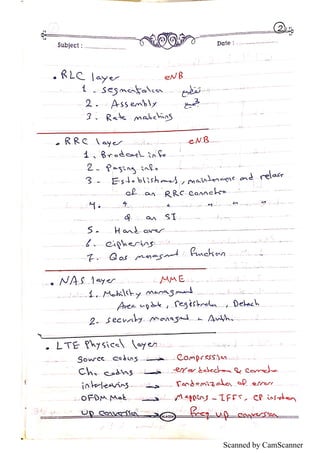 2
Subject :
Date :
• RLC layer eNB
1. Segmentation تقطيع
2. Assembly تجميع
3. Rate matching
• RRC layer eNB
1. Brodcast info
2. Paging info.
3. Establishment, maintenance and relase
of an RRC connection
4. " " " " "
of an SI
5. Hand over
6. Ciphering
7. Qos managment function
• NAS layer MME
1. Mobility managment
Area update, registration, Detach
2. security managmet - Auth.
• LTE Physical layer
Source coding → Compression
Ch. coding → error detection & correction
interleaving → randomization of error
OFDM Mod → Mapping - IFFT, CP insertion
Up conversion → Freq up conversion
Scanned by CamScanner